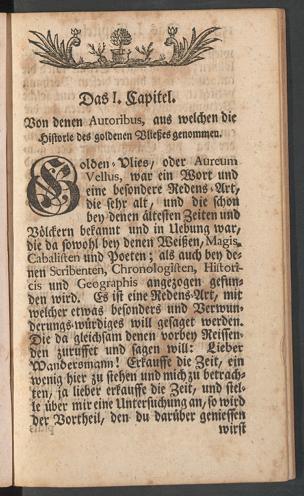 Das I. Capitel.
Von denen Autoribus, aus welchen die
Historie des goldenen Vließes genommen.
Golden-Vlies, oder Aureum
Vellus, war ein Wort und
eine besondere Redens-Art,
die sehr alt, und die schon
bey denen ältesten Zeiten und
Völckern bekannt und in Uebung war,
die da sowohl bey denen Weißen, Magis,
Cabalisten und Poeten; als auch bey de-
nen Scribenten, Chronologisten, Histori-
cis und Geographis angezogen gefun-
den wird. Es ist eine Redens-Art, mit
welcher etwas besonders und Verwun-
derungs-würdiges will gesaget werden.
Die da gleichsam denen vorbey Reissen-
den zuruffet und sagen will: Lieber
Wandersmann! Erkauffe die Zeit, ein
wenig hier zu stehen und mich zu betrach-
ten, ja lieber erkauffe die Zeit, und stel-
le über mir eine Untersuchung an, so wird
der Vortheil, den du darüber geniessen
wirst